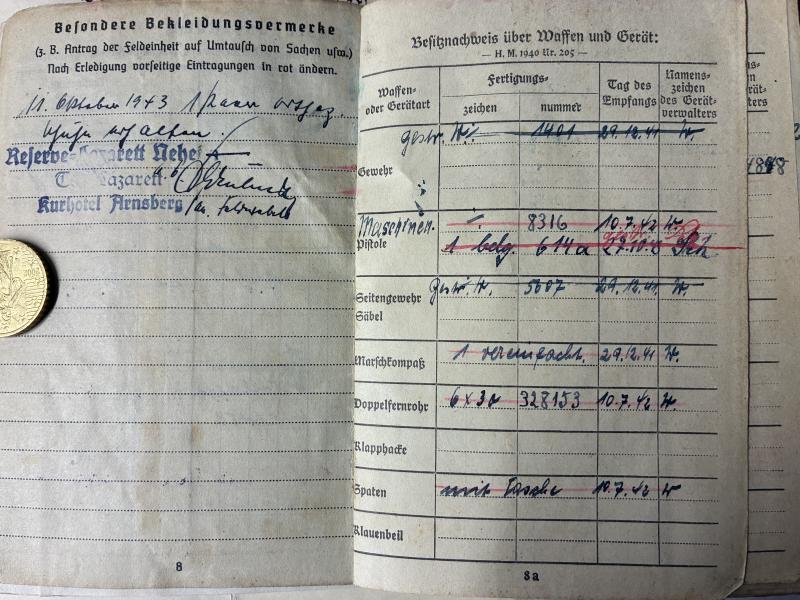 Besondere Bekleidungsvermerke
(z. B. Antrag der Feldeinheit auf Umtausch von Sachen usw.)
Nach Erledigung vorseitige Eintragungen in rot ändern.
11. Oktober 1943 1
erhalten.
Reserve-Lazarett Nehei
Lazarett
Kurhotel Arnsberg
8
Besitznachweis über Waffen und Gerät:
— H. M. 1940 Nr. 205 —
Waffen- oder Gerätart
Fertigungs-
zeichen nummer
Tag des Empfangs
Namens-zeichen des Gerät-verwalters
1401 29.12.41 W.
Gewehr
Maschinen. 8316 10.7.42 W.
Pistole 1 belg. 614a
Seitengewehr 5607 29.12.41 W.
Säbel
Marschkompaß 1 vereinfacht. 29.12.41 W.
Doppelfernrohr 6x30 328153 10.7.42 W.
Klapphacke
Spaten mit Tasche 10.7.42 W
Klauenbeil
8a